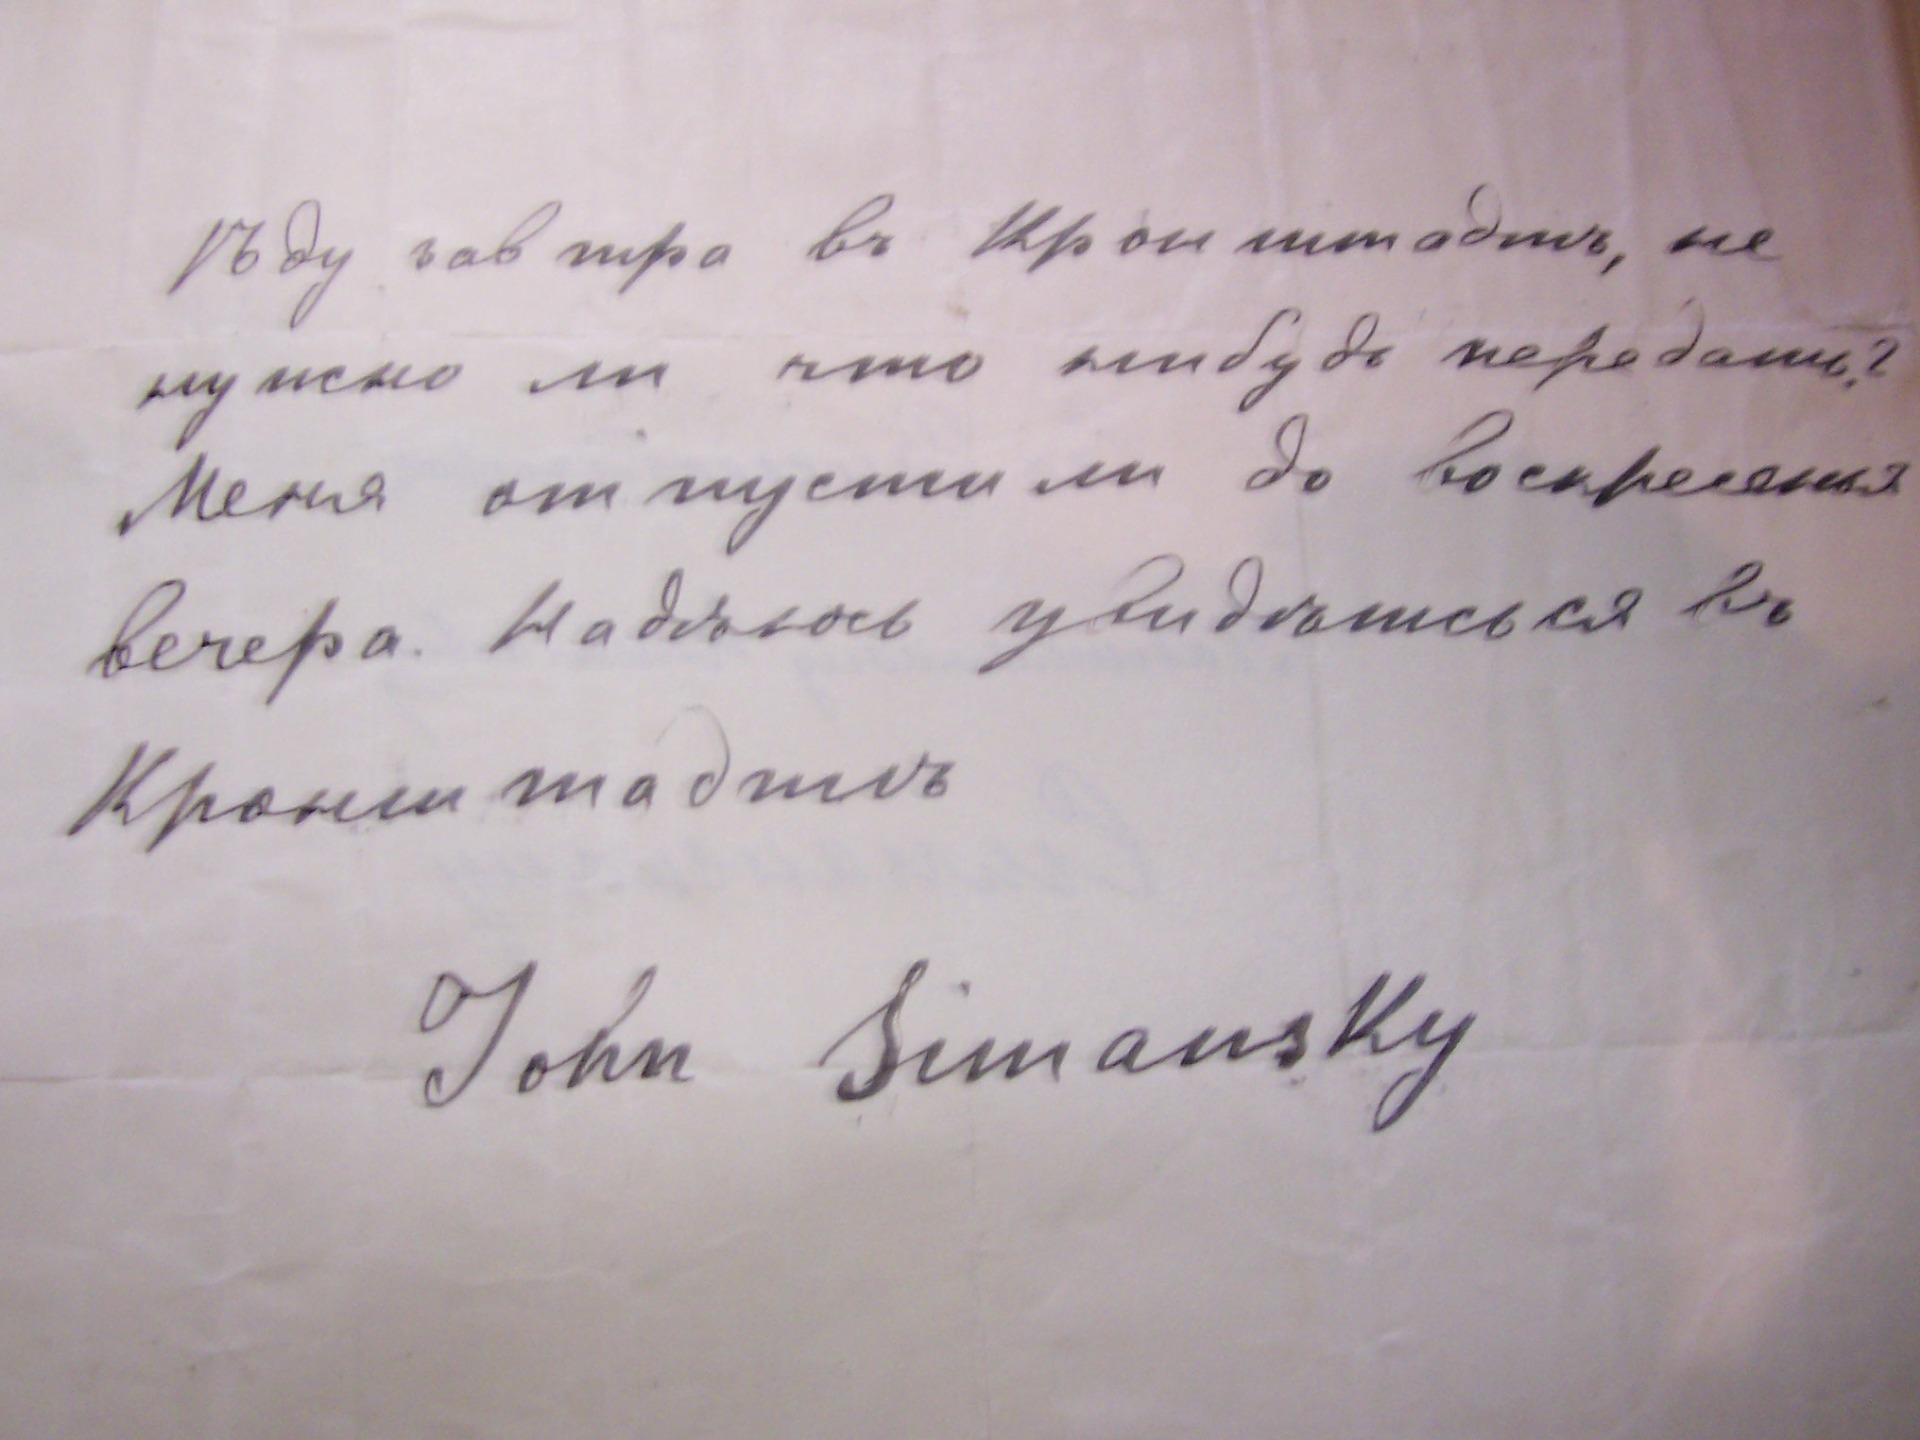 Ѣду завтра въ Кронштадтъ, не
нужно ли что нибудь передать?
Меня отпустили до воскресенья
вечера. Надѣюсь увидѣться въ
Кронштадтѣ
John Simansky